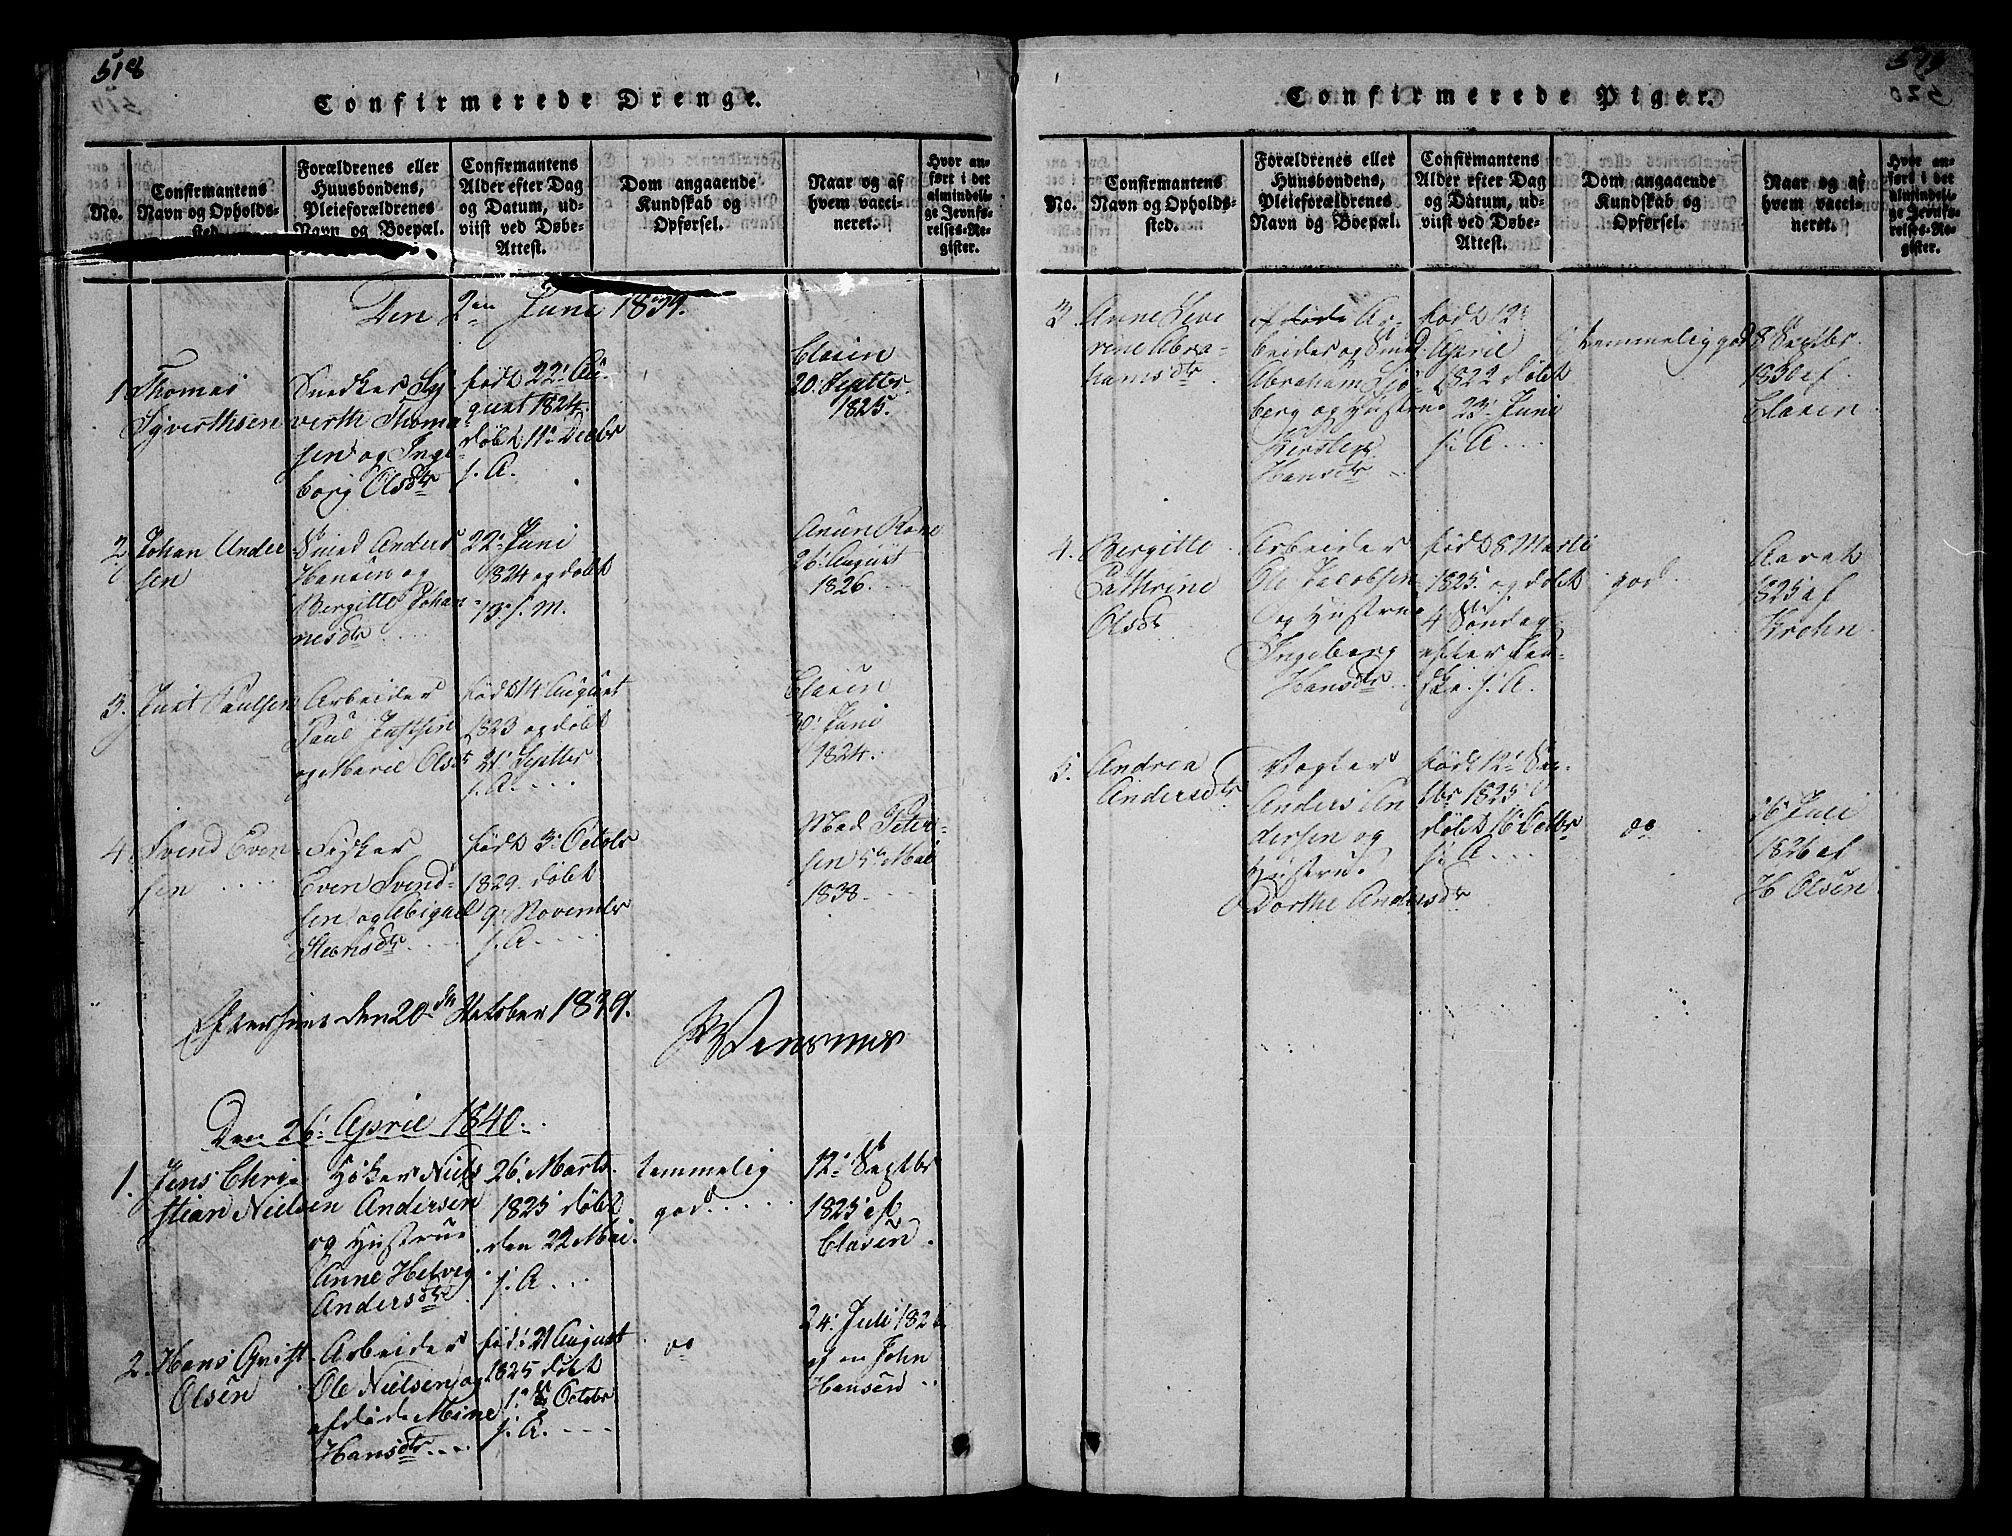 518
Confirmerede Drenge.
No.
Confirmantens
Navn og Opholds-
sted.
Forældrenes eller
Huusbondens,
Pleieforældrenes
Navn og Boepæl.
Confirmantens
Alder efter Dag
og Datum, ud-
viist ved Døbe-
Attest.
Dom angaaende
Kundskab og
Opførsel.
Naar og af
hvem vacci-
neret.
Hvor an-
ført i det
almindeli-
ge Jevnfø-
relses-Re-
gister.
Den 2en Juni 1839.
1
Thomas
Syverthsen
Snedker Sy
verth Thoma
sen og Inge
borg Olsdtr
født 22' Au
gust 1824
døbt 11te Decbr
s. A.
Clasen
20' Septbr
1825.
2
Johan Ander
sen
Smed Anders
Hansen og
Bergitte Johan
nesdtr
22' Juni
1824 og døbt
13' s. M.
26' August
1826
3.
Just Paulsen
Arbeider
Paul Justsen
og Marie Olsdtr
født 14' August
1823 og døbt
21' Septbr
s. A.
Clasen
30' Juni
1824
4
Svend Even
sen
Fisker
Even Svend-
sen og Abigael
født 3' Octob
1829. døbt
9' November
s. A.
Mad Peter-
sen 5te Mai
1838
den 20de October 1839.
Den 26' April 1840.
1.
Jens Chri
stian Nielsen
Høker Niels
Andersen
og Hustrue
Anne Helveg
Andersdtr
26' Marts
1825 døbt
den 22 Mai
s. A.
temmelig
god
12' Septbr
1825 af
Clasen
2.
Hans Qvist
Olsen
Arbeider
Ole Nielsen og
afdøde Mine
Hansdtr
fød: 21 August
1825 døbt
Octobr
s. A.
do
24' Juli 182
af en John
Hansen
Confirmerede Piger.
No.
Confirmantens
Navn og Opholds-
sted.
Forældrenes eller
Huusbondens,
Pleieforældrenes
Navn og Boepæl.
Confirmantens
Alder efter Dag
og Datum, ud-
viist ved Døbe-
Attest.
Dom angaaende
Kundskab og
Opførsel.
Naar og af
hvem vacci-
neret.
Hvor an-
ført i det
almindeli-
ge Jevnfø-
relses-Re-
gister.
3
Anne
Abra-
hamsdtr
afdøde Ar-
beider og Smed
Abraham Sjø-
berg og Hustrue
Hansdtr
født 12'
April
1822 døbt
23' Juni
s. A
temmelig god
8 Septbr
1830 af
Clasen
4.
Bergitte
Cathrine
Olsdtr
Arbeider
Ole Jacobsen
og Hustrue
Ingeborg
Hansdtr
født 8 Marts
1825 og døbt
4 Søndag
efter Paa-
ske s. A.
god
Aaret
1825 af
Krohn
5.
Andrea
Andersdtr
Vogter
Anders An
dersen og
Hustrue
Dorthe Andersdtr
født 12'
1825
døbt 16
s. A
do
26' Juli
1826 af
H Olsen